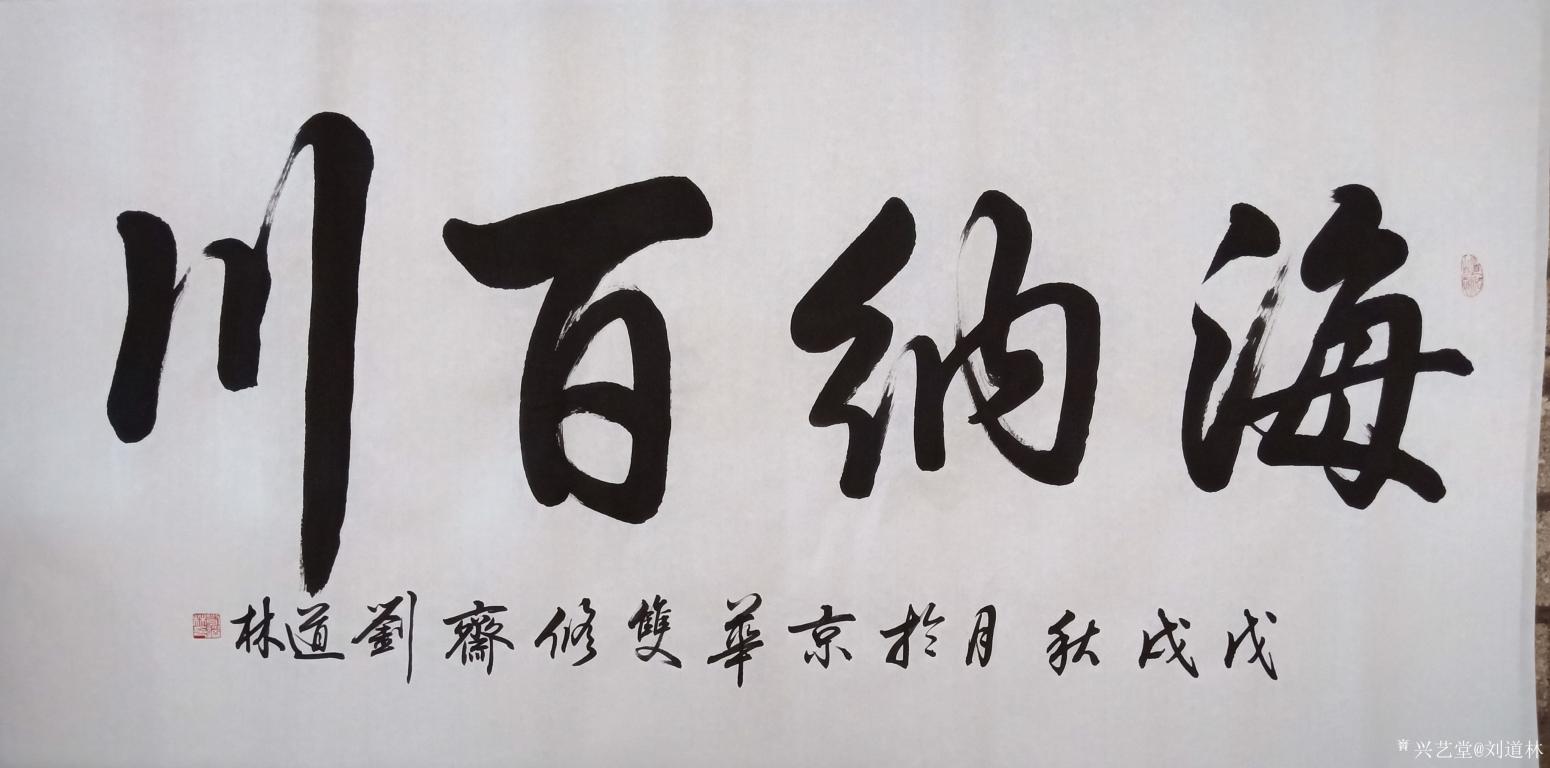 海納百川
戊戌秋月於京華雙修齋劉道林
兴艺堂@刘道林